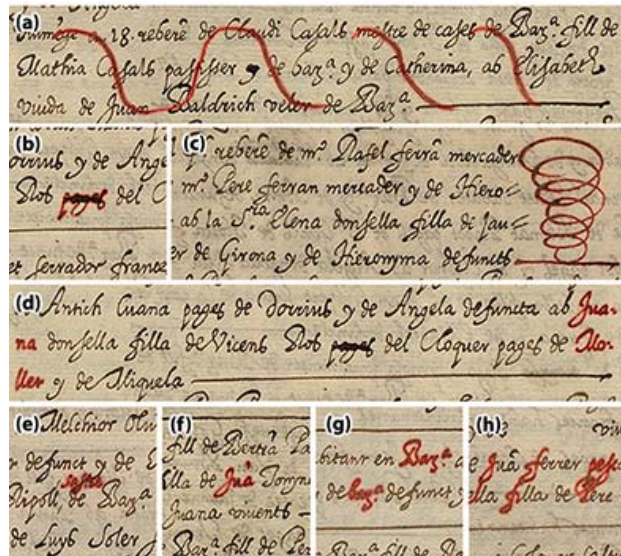 (a)
dit dia rebere de Claudi Casals mestre de cases de Barᵃ. fill de
Mathia Casals passisser y de barᵃ y de Catherina, ab Elisabeth
viuda de Juan Baldrich veler de Barᵃ
(b)
Dorrius y de Ange
Ros pages del C
et serrador france
(c)
rebere de mº. Rafel ferrā mercader
mº. Pere ferran mercader y de Hiero=
ab la Sʳᵃ. Elena donsella filla di Jau=
er de Girona y de Hieronyma defuncts
(d)
Antich Cuana pages de Dorrius y de Angela defuncta ab Jua-
na donsella filla de Vicens Ros pages del Cloquer pages de Mo-
ller y de Miquela
(e)
Melchior Oliv
r defunct y de E
sastre
Ripoll, de Barᵃ
de Luys Soler
(f)
fill de Bertrā Pa
filla de Juā Domin
Juana vivents
Barᵃ. fill de Per
(g)
habitant en Barᵃ
de barᵃ defunct y
(h)
Juā ferrer pesc
ella filla de Pere